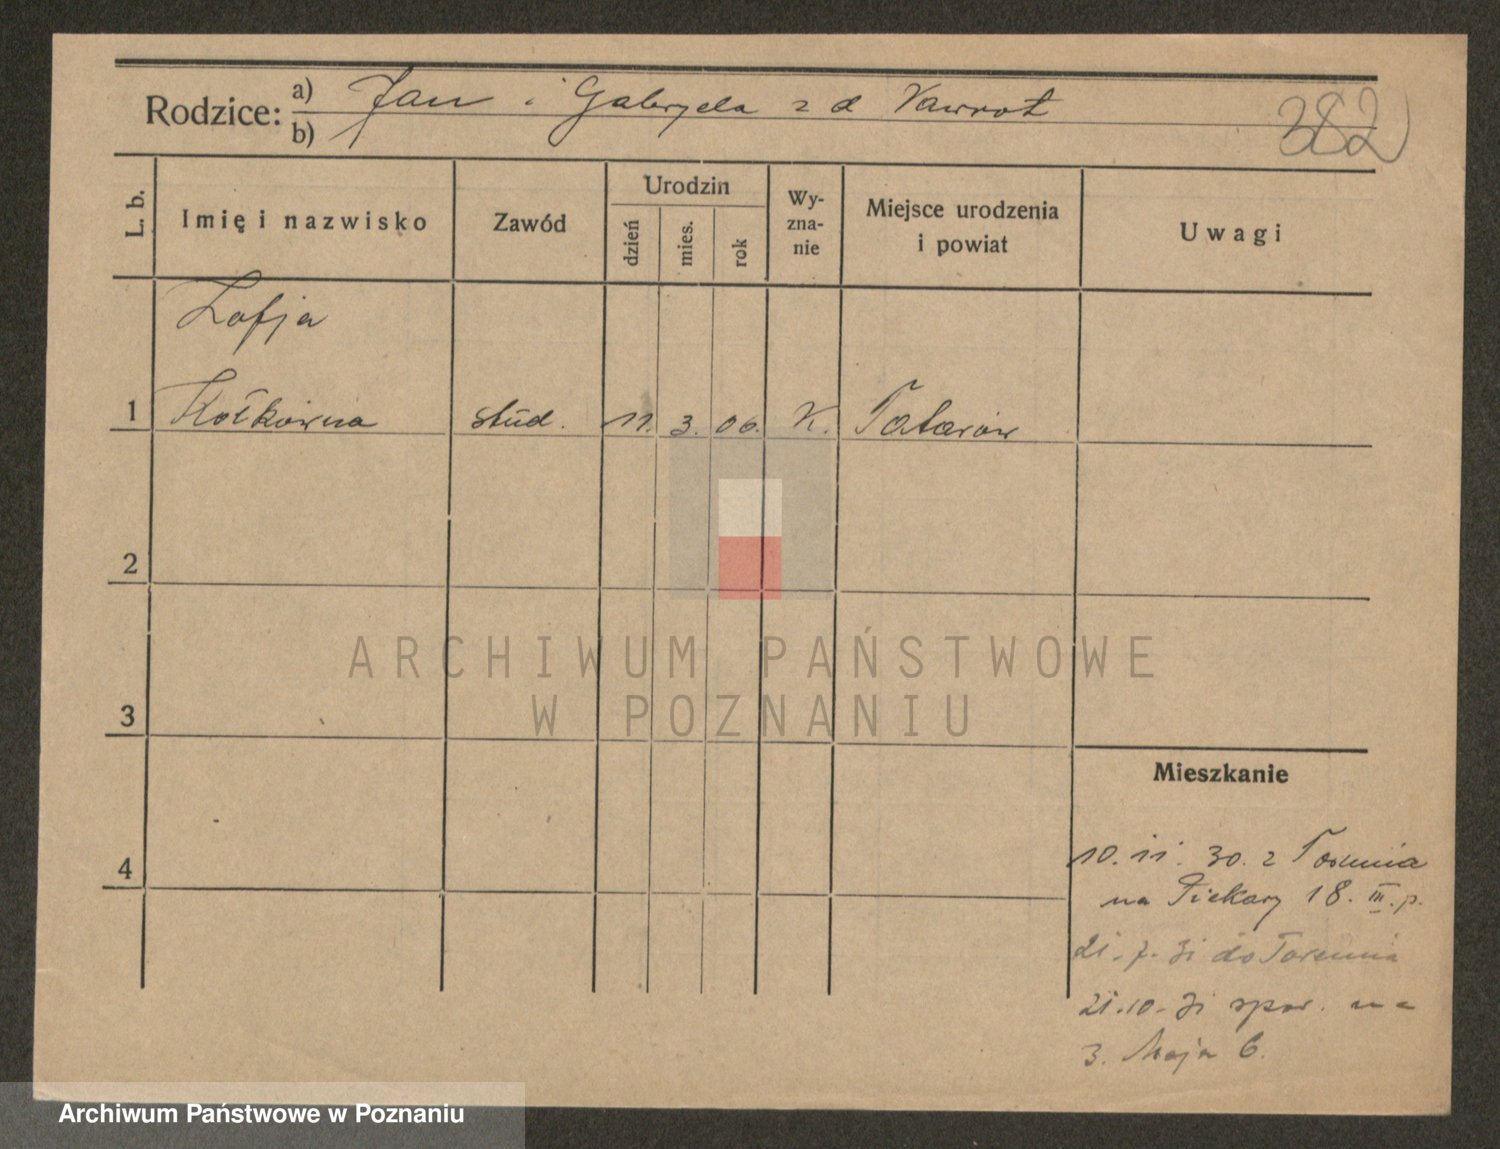 Rodzice:
a) Jan i Gabryela z d Nawrot
b)
382
L. b.
Imię i nazwisko
Zawód
Urodzin
dzień
mies.
rok
Wy-
zna-
nie
Miejsce urodzenia
i powiat
Uwagi
Zofja
1 Kołkówna stud. 11. 3. 06. K. Tatarów
2
3
4
Mieszkanie
10. 11. 30. z Torunia
na Piekary 18. III. p.
21. 7. 31 do Torunia
21. 10. 31 na
3. Maja 6.
ARCHIWUM PAŃSTWOWE
W POZNANIU
Archiwum Państwowe w Poznaniu